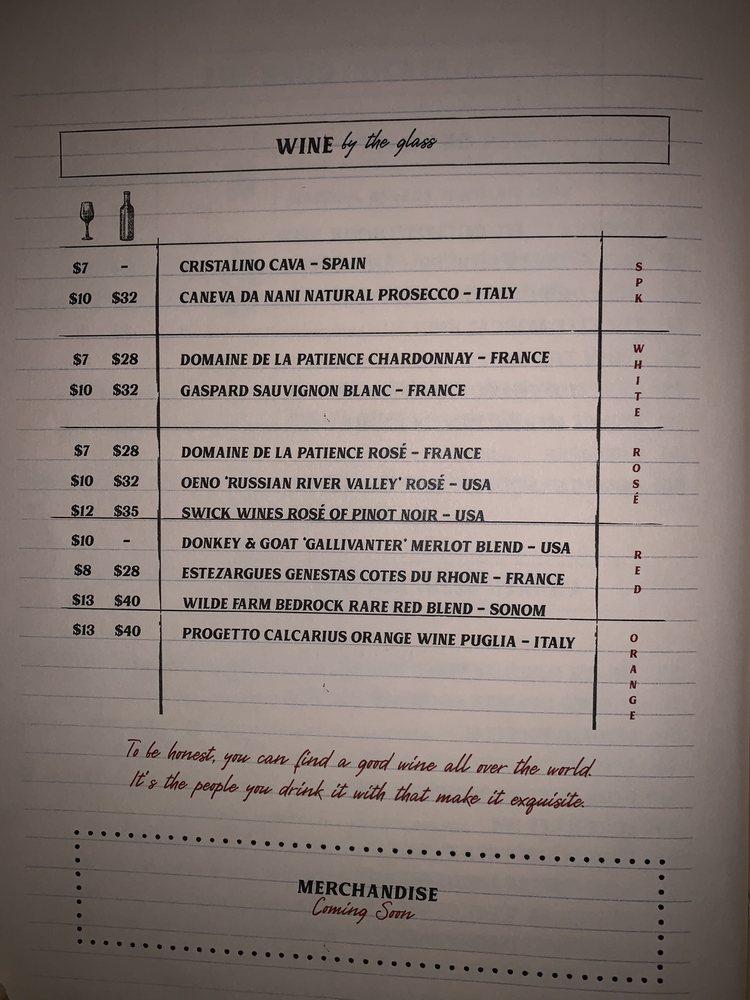 WINE by the glass
$7 – CRISTALINO CAVA – SPAIN
$10 $32 CANEVA DA NANI NATURAL PROSECCO – ITALY
SPK
$7 $28 DOMAINE DE LA PATIENCE CHARDONNAY – FRANCE
$10 $32 GASPARD SAUVIGNON BLANC – FRANCE
WHITE
$7 $28 DOMAINE DE LA PATIENCE ROSÉ – FRANCE
$10 $32 OENO 'RUSSIAN RIVER VALLEY' ROSÉ – USA
$12 $35 SWICK WINES ROSÉ OF PINOT NOIR – USA
ROSÉ
$10 – DONKEY & GOAT 'GALLIVANTER' MERLOT BLEND – USA
$8 $28 ESTEZARGUES GENESTAS COTES DU RHONE – FRANCE
$13 $40 WILDE FARM BEDROCK RARE RED BLEND – SONOM
RED
$13 $40 PROGETTO CALCARIUS ORANGE WINE PUGLIA – ITALY
ORANGE
To be honest, you can find a good wine all over the world.
It's the people you drink it with that make it exquisite.
MERCHANDISE
Coming Soon